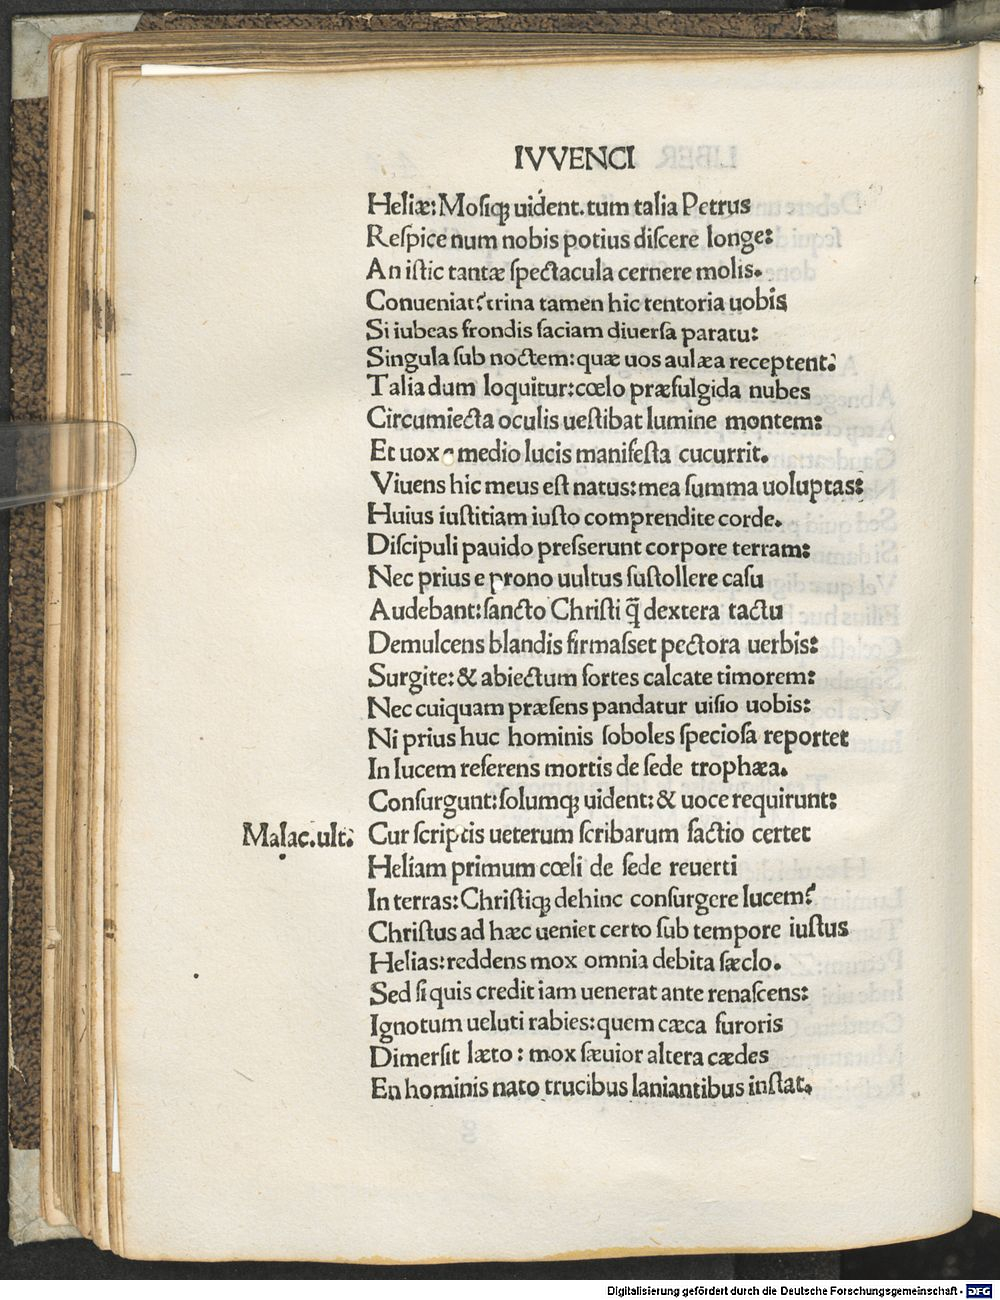 IVVENCI
Heliæ: Mosiqꝫ uidént. tum talia Petrus
Reſpice num nobis potius diſcere longe:
An iſtic tantæ ſpectacula cernere molis.
Conueniat? trina tamen hic tentoria uobis
Si iubeas frondis faciam diuerſa paratu:
Singula ſub noctem: quæ uos aulæa receptent?
Talia dum loquitur: cœlo præfulgida nubes
Circumiecta oculis ueſtibat lumine montem:
Et uox e medio lucis manifeſta cucurrit.
Viuens hic meus eſt natus: mea ſumma uoluptas:
Huius iuſtitiam iuſto comprendite corde.
Diſcipuli pauido preſſerunt corpore terram:
Nec prius e prono uultus ſuſtollere caſu
Audebant: ſancto Chriſti q̃ dextera tactu
Demulcens blandis firmaſſet pectora uerbis:
Surgite: & abiectum fortes calcate timorem:
Nec cuiquam præſens pandatur uiſio uobis:
Ni prius huc hominis ſoboles ſpecioſa reportet
In lucem referens mortis de ſede trophæa.
Conſurgunt: ſolumqꝫ uident: & uoce requirunt:
Malac. ult. Cur ſcriptis ueterum ſcribarum factio certet
Heliam primum cœli de ſede reuerti
In terras: Chriſtiqꝫ dehinc conſurgere lucem?
Chriſtus ad hæc ueniet certo ſub tempore iuſtus
Helias: reddens mox omnia debita ſæclo.
Sed ſi quis credit iam uenerat ante renaſcens:
Ignotum ueluti rabies: quem cæca furoris
Dimerſit læto: mox ſæuior altera cædes
En hominis nato trucibus laniantibus inſtat.
Digitalisierung gefördert durch die Deutsche Forschungsgemeinschaft - DFG